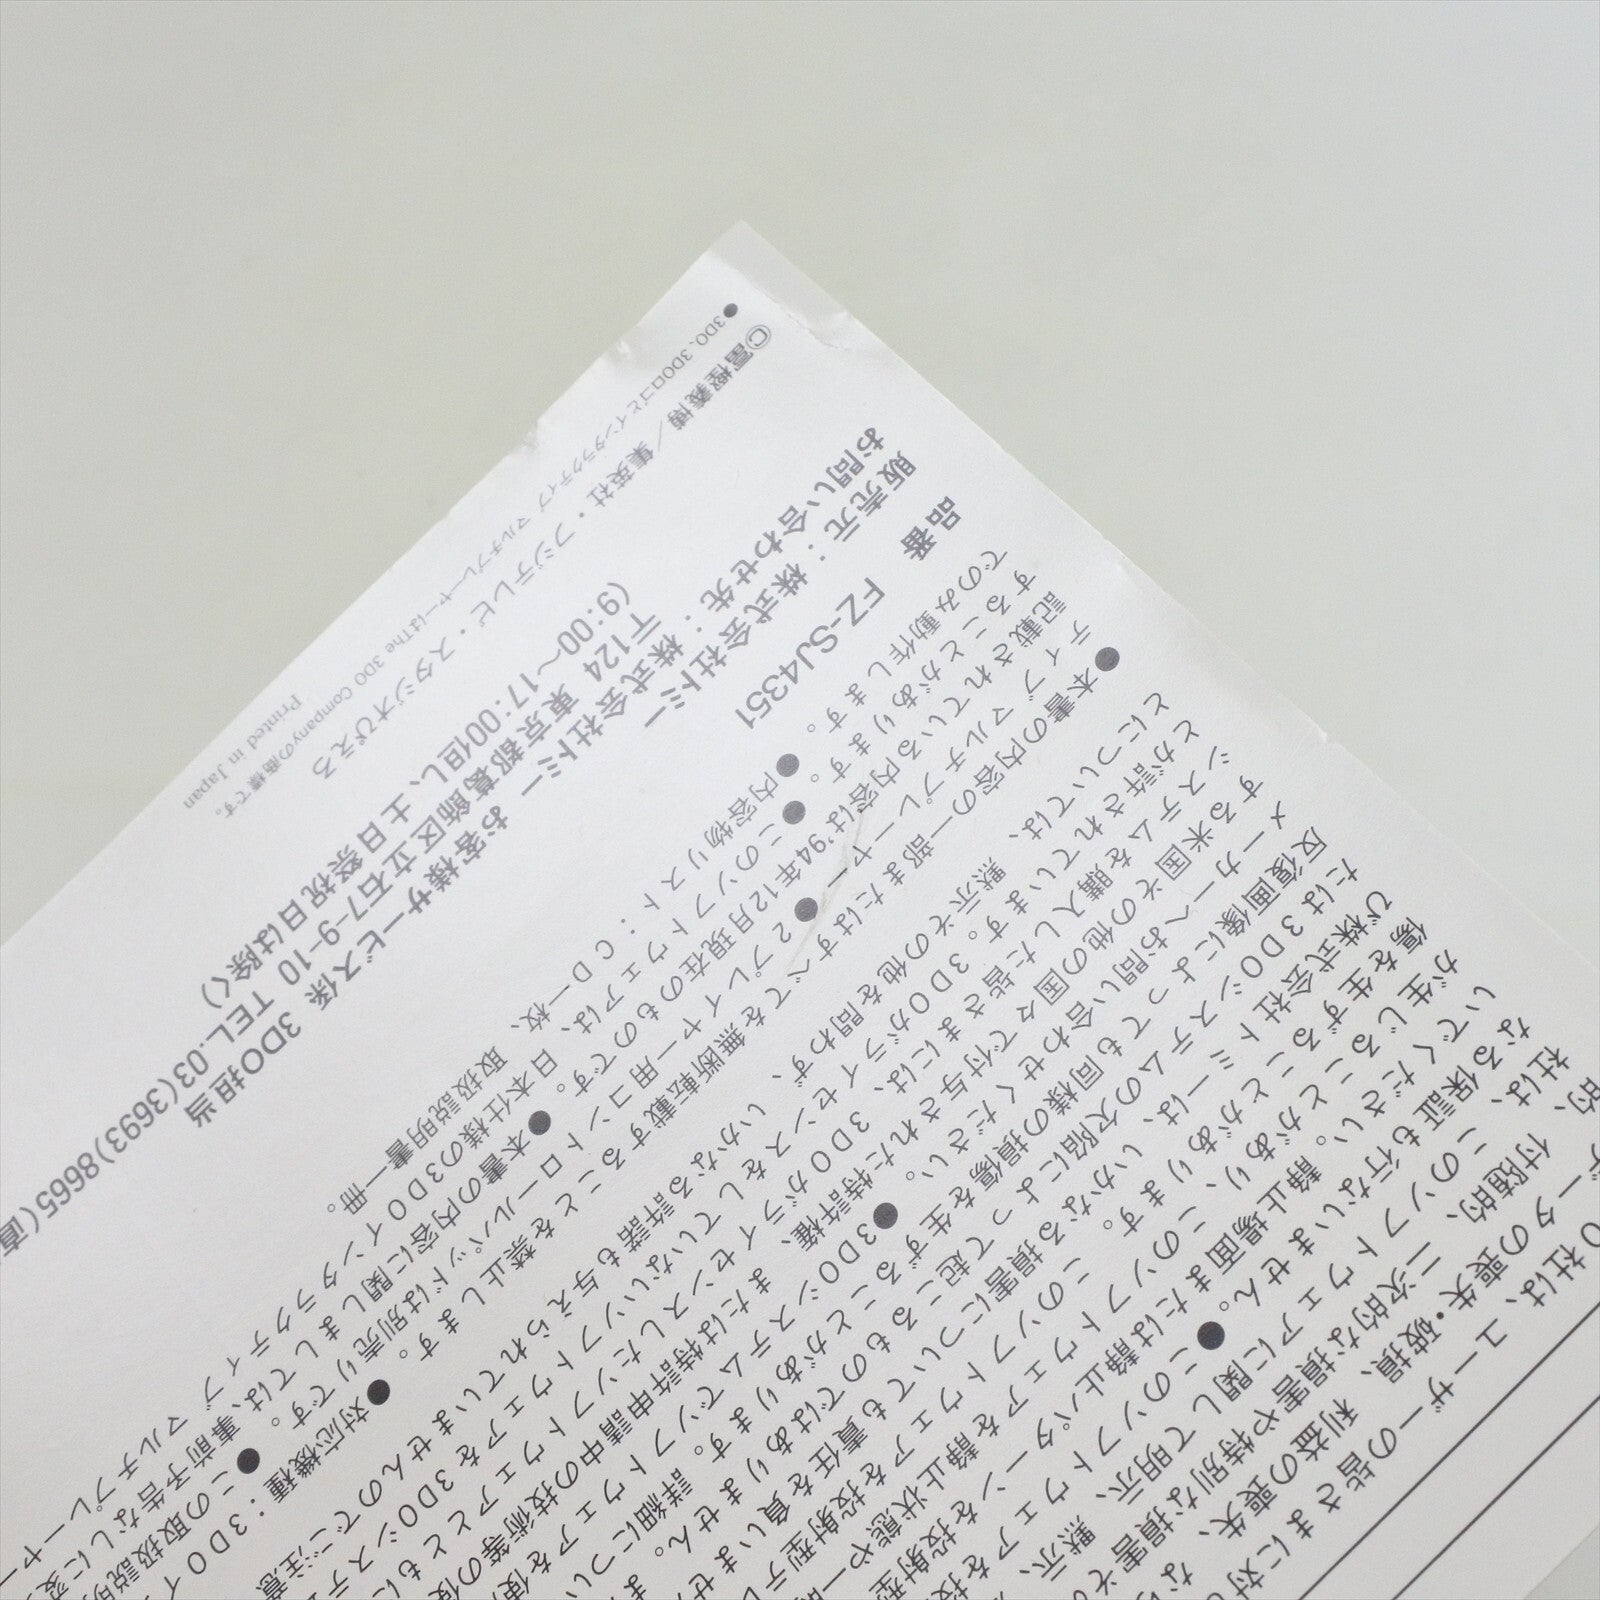 O社は、ユーザーの皆さまに対
データの喪失・破損、利益の喪失、な
的、付随的、二次的な損害や特別な損害そ
社は、このソフトウェアに関して明示、黙示、
なる保証も行ないません。●このソフトウェアを
いでください。静止場面または静止パターンを投射型
が生じることがあり、このソフトウェアを静止状態や一時
傷を生ずることがあります。このソフトウェアを投射型テレ
び株式会社トミーは、いかなる損害についても責任を負いませ
たは3DOシステムの欠陥によって起こるものではありません。ま
反復画像によっても同様の損傷を生ずることがあります。詳細につい
メーカーへお問い合わせください。●3DOシステムでソフトウェアを使
する米国その他の国々で付与された特許権、または特許申請中の技術等の使
システムを購入した皆さまには、3DOがライセンスしたソフトウェアとともに
とが許されています。3DOがライセンスをしていないソフトウェアを3DOシステ
とについては、黙示その他を問わず、いかなる許諾も与えられていませんのでご注意
●本書の内容の一部またはすべてを無断転載することを禁止します。●対応機種：3DOイ
ティブ マルチプレーヤー ●2プレイヤー用コントロールパッドは別売りです。●この取扱説明
記載されている内容は'94年12月現在のものです。●本書の内容に関しましては、事前予告なしに変
することがあります。●このソフトウェアは、日本仕様の3DOインタラクティブ マルチプレーヤー
でのみ動作します。●内容物リスト：CD一枚、取扱説明書一冊。
品番 FZ-SJ4351
販売元：株式会社トミー
お問い合わせ先：株式会社トミー お客様サービス係 3DO担当
〒124 東京都葛飾区立石7-9-10 TEL.03(3693)8665(直
(9:00〜17:00但し、土日祭祝日は除く)
©冨樫義博／集英社・フジテレビ・スタジオぴえろ
●3DO、3DOロゴとインタラクティブ マルチプレーヤーはThe 3DO Companyの商標です。
Printed in Japan